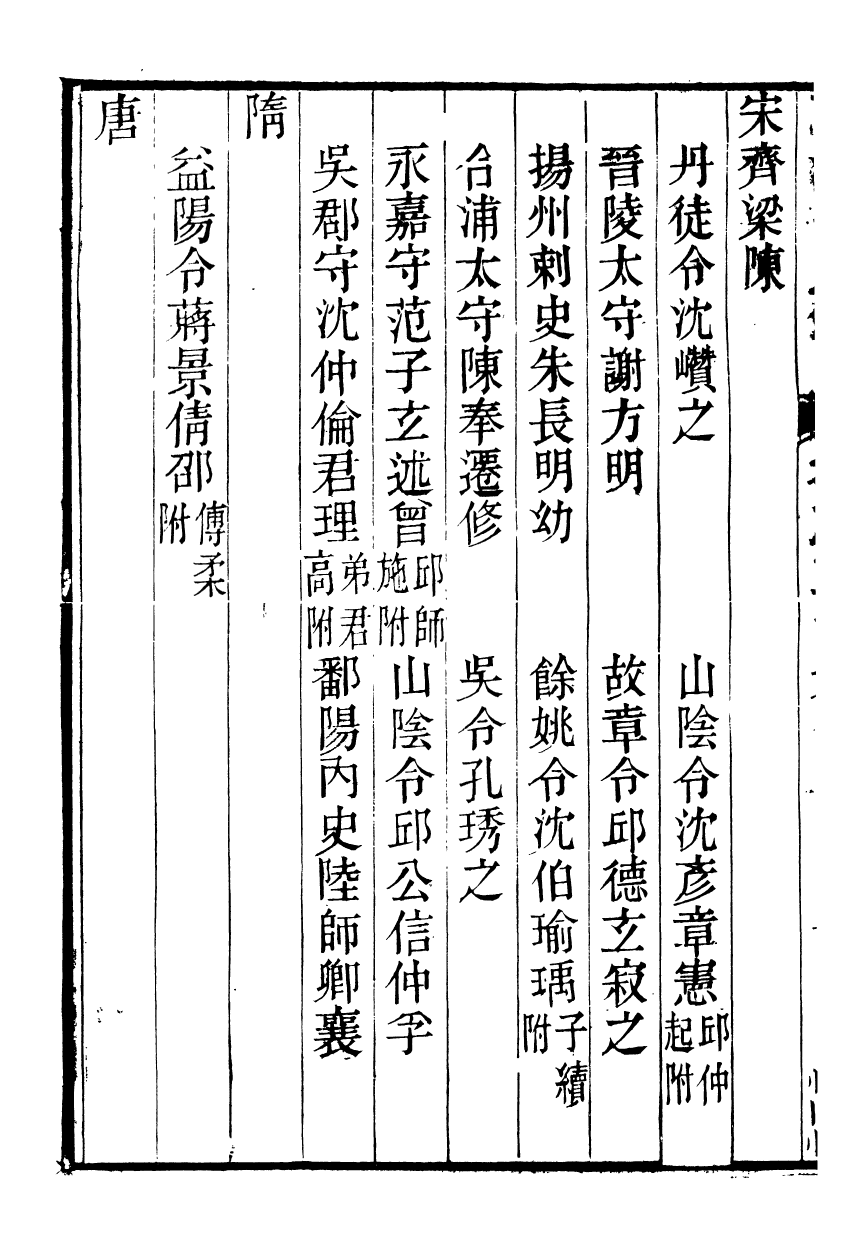 宋齊梁陳
丹徒令沈巑之　山陰令沈彥章憲邱仲起附
晉陵太守謝方明　故章令邱德玄寂之
揚州刺史朱長明幼　餘姚令沈伯瑜瑀子續附
合浦太守陳奉遷修　吳令孔琇之
永嘉守范子玄述曾邱師施附　山陰令邱公信仲孚
吳郡守沈仲倫君理弟君高附　鄱陽內史陸師卿襄
隋
益陽令蔣景倩邵傅柔附
唐